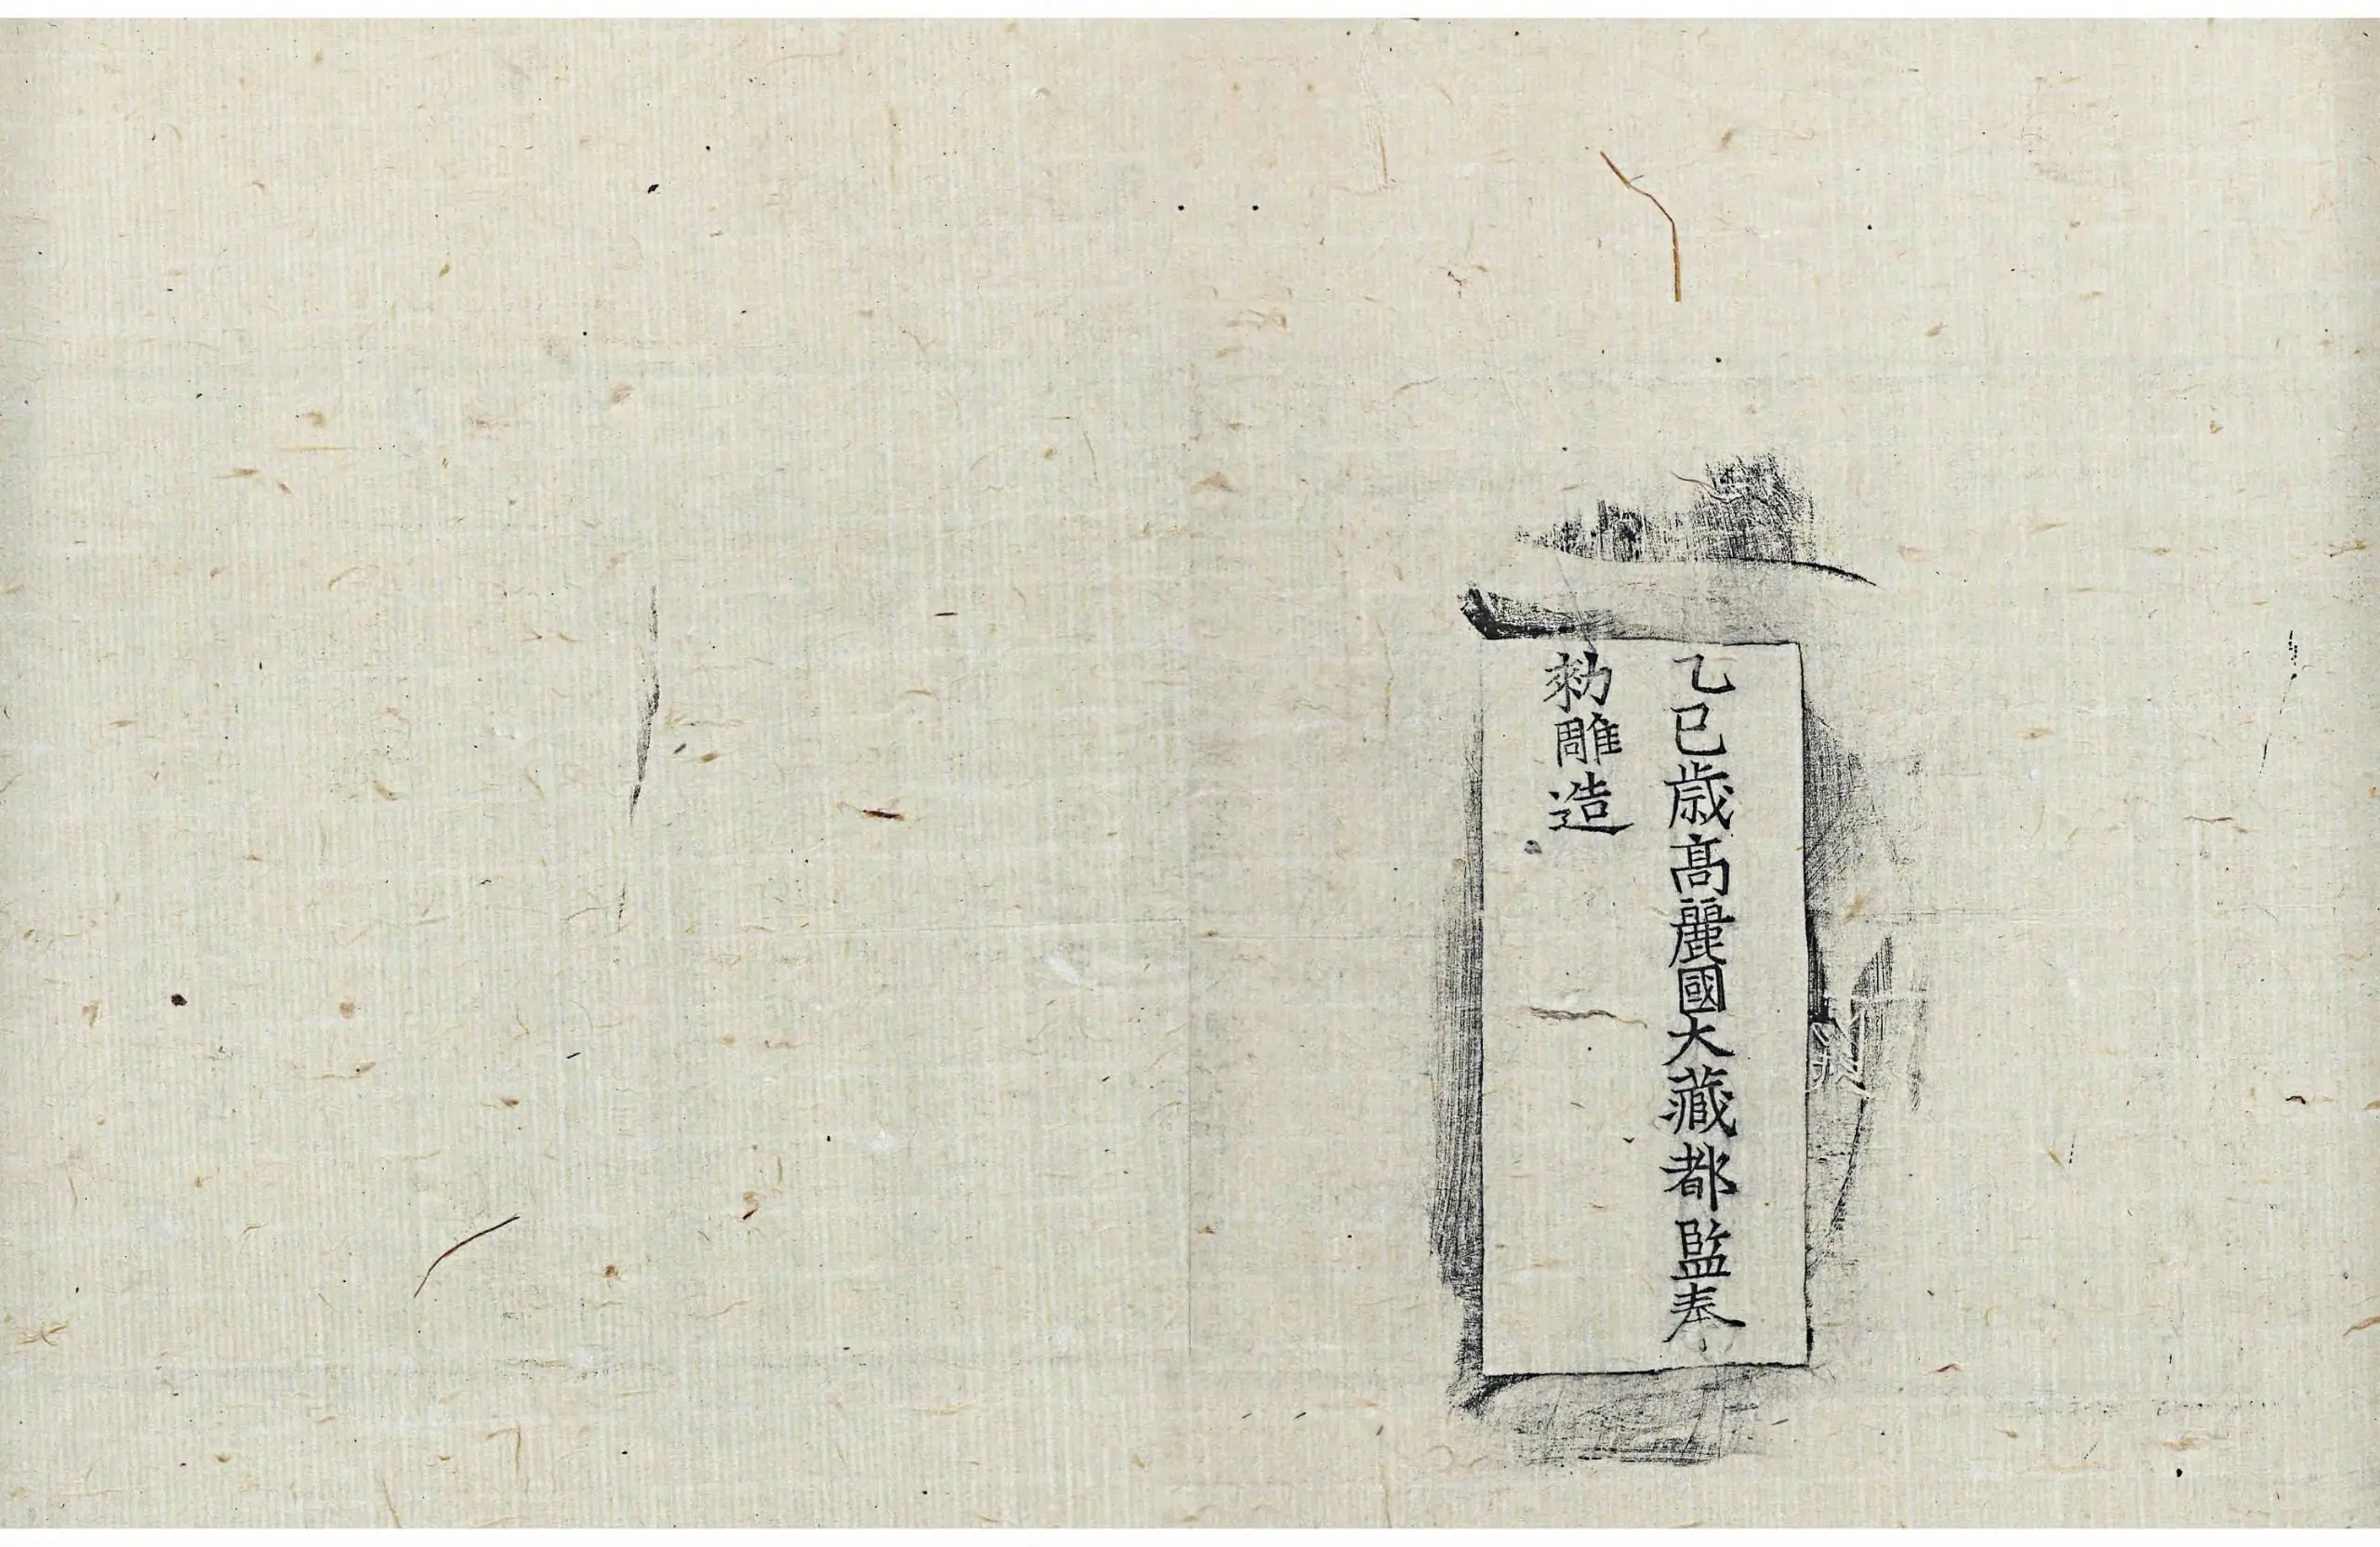 乙巳歳高麗國大藏都監奉
勑雕造